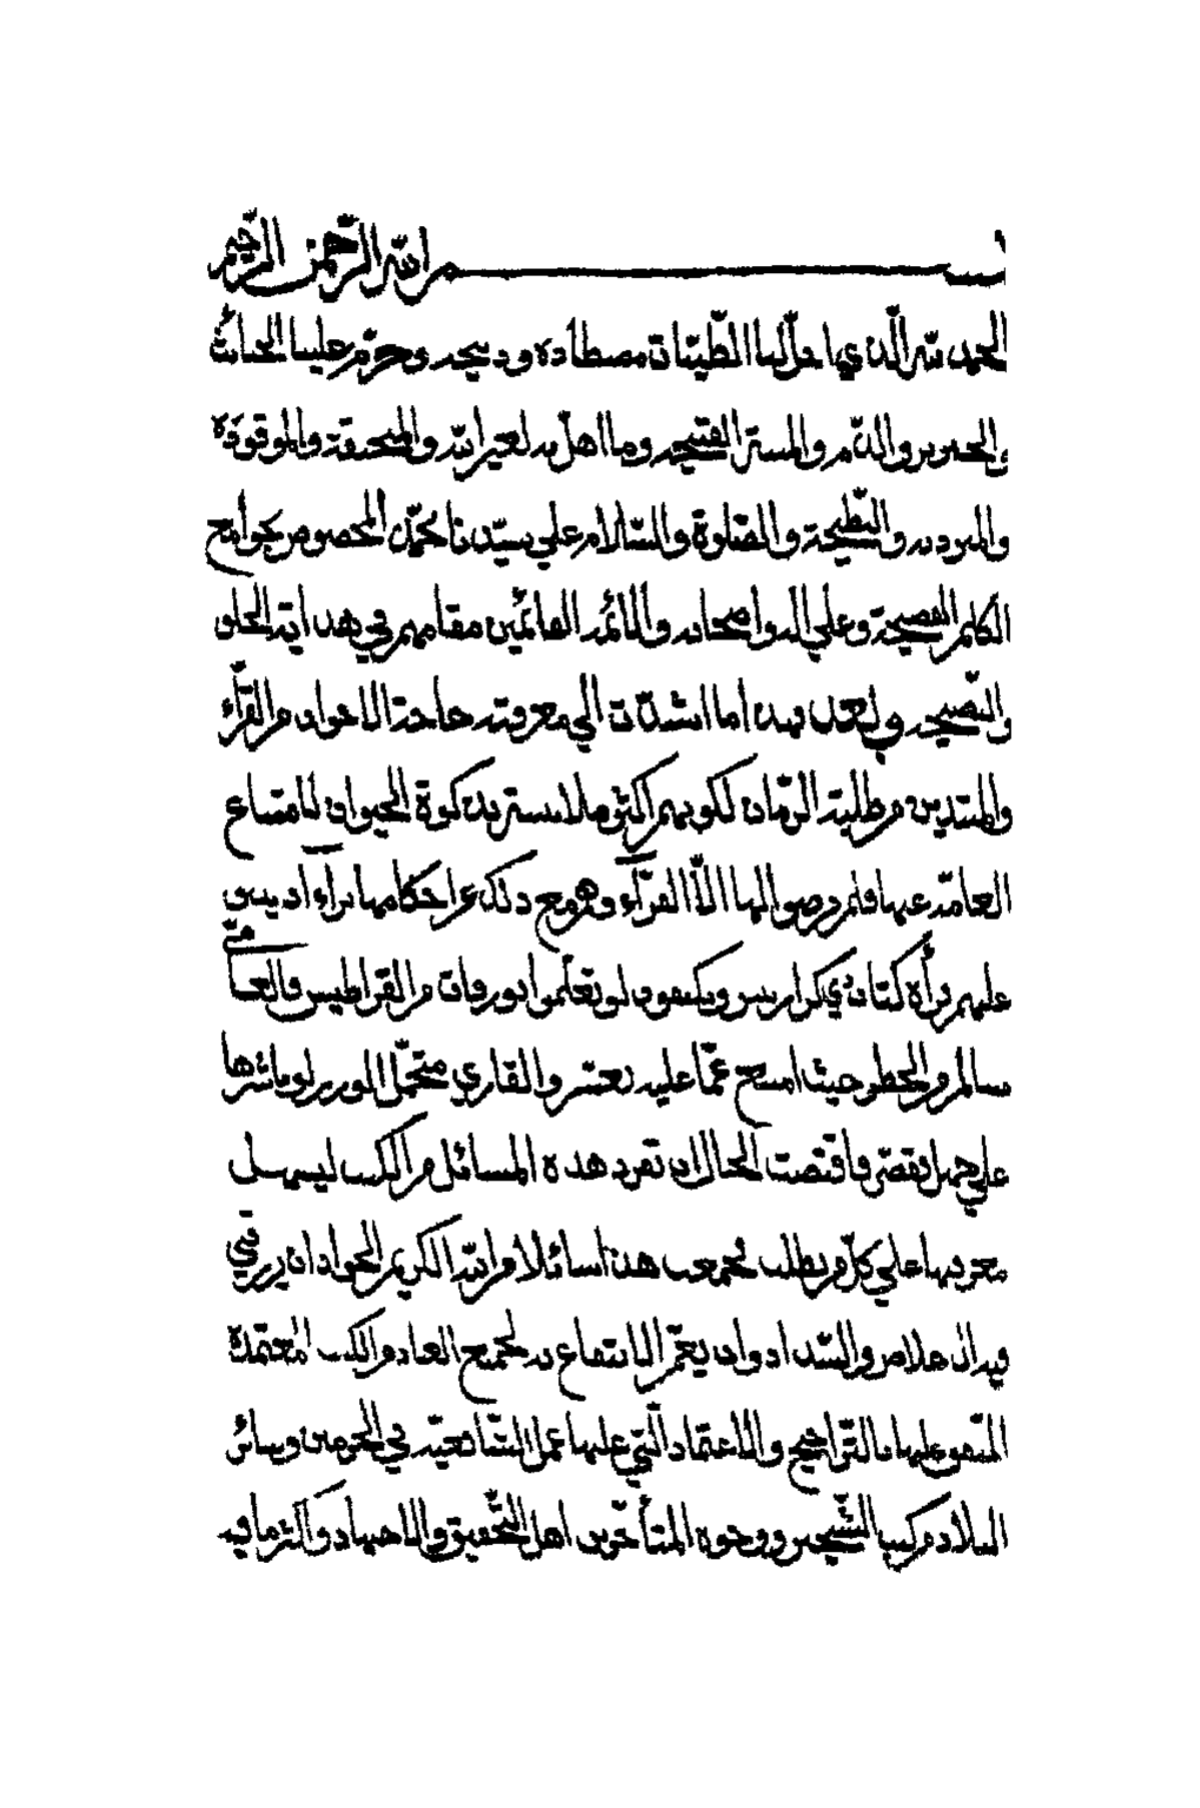 بسم الله الرحمن الرحيم
الحمد لله الذي احل لنا الطيبات مصطاده وذبيحه وحرم علينا الخبائث
والخنزير والدم والميتة القبيحه وما اهل به لغير الله والمنخنقة والموقوذة
والمتردية والنطيحة والصلوة والسلام علي سيدنا محمد المخصوص بجوامع
الكلم الفصيحة وعلي اله واصحابه والائمه القائمين مقامهم في هداية الخلق
والنصيحه وبعد فهذا ما اشتدت الي معرفته حاجة الاخوان من القرآء
والمبتدين من طلبة الزمان لكونهم اكثر ملابسة بذكوة الحيوان لامتناع
العامة عنها فلم يرضوا لها الا القرآء وهم مع ذلك عن احكامها برآء اذ يشق
عليهم قرأة كتاب ذي كراريس ويكتفون لو تعلموا بورقات من القراطيس فالعامي
سالم من الخطر حيث امتنع عما عليه تعسر والقاري متحمل الوزر لو باشرها
علي جهل اوقصر فاقتضت الحال ان تفرد هذه المسائل من الكتب ليسهل
معرفتها علي كل من يطلب فجمعت هذا سائلا من الله الكريم الجواد ان يرزقني
فيه الاخلاص والسداد وان يعم الانتفاع به لجميع العباد من الكتب المعتمدة
المتفق عليها بالتراجيح والاعتماد التي عليها عمل الشافعية في الحرمين وسائر
البلاد من كتب الشيخين ووجوه المتأخرين اهل التحقيق والاجتهاد واكثر ما فيه